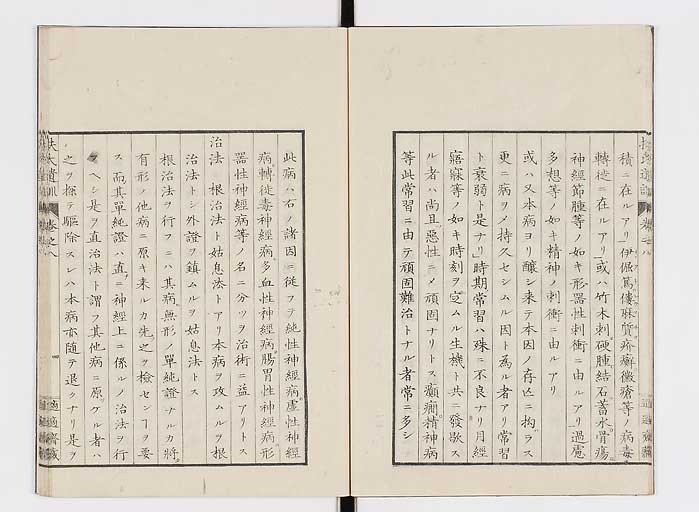 積ニ在ルアリ伊倔篤僂麻質疥癬黴瘡等ノ病毒
轉徙ニ在ルアリ或ハ竹木刺硬腫結石蓄水骨瘍
神經節腫等ノ如キ形器性刺衝ニ由ルアリ過慮
多想等ノ如キ精神ノ刺衝ニ由ルアリ
或ハ又本病ヨリ釀シ来テ本因ノ存亾ニ拘ラス
更ニ病ヲメ持久セシムル因ト為ル者アリ常習
ト衰弱ト是ナリ時期常習ハ殊ニ不良ナリ月經
寤寐等ノ如キ時刻ヲ定ムル生機ト共ニ發歇ス
ル者ハ尚且惡性ニメ頑固ナリトス癲癇精神病
等此常習ニ由テ頑固難治トナル者常ニ多シ
扶氏遺訓 卷之八 適適齋藏
此病ハ右ノ諸因ニ従フテ純性神經病虛性神經
病轉徙毒神經病多血性神經病腸胃性神經病形
器性神經病等ノ名ニ分ツヲ治術ニ益アリトス
治法 根治法ト姑息法トアリ本病ヲ攻ムルヲ根
治法トシ外證ヲ鎮ムルヲ姑息法トス
根治法ヲ行フニハ其病無形ノ單純證ナルカ將
有形ノ他病ニ原キ来ルカ先之ヲ檢センヿヲ要
ス而其單純證ハ直ニ神經上ニ係ルノ治法ヲ行
フヘシ是ヲ直治法ト謂フ其他病ニ原ケル者ハ
之ヲ探テ驅除スレハ本病亦随テ退クナリ是ヲ
扶氏遺訓 卷之八 適適齋藏